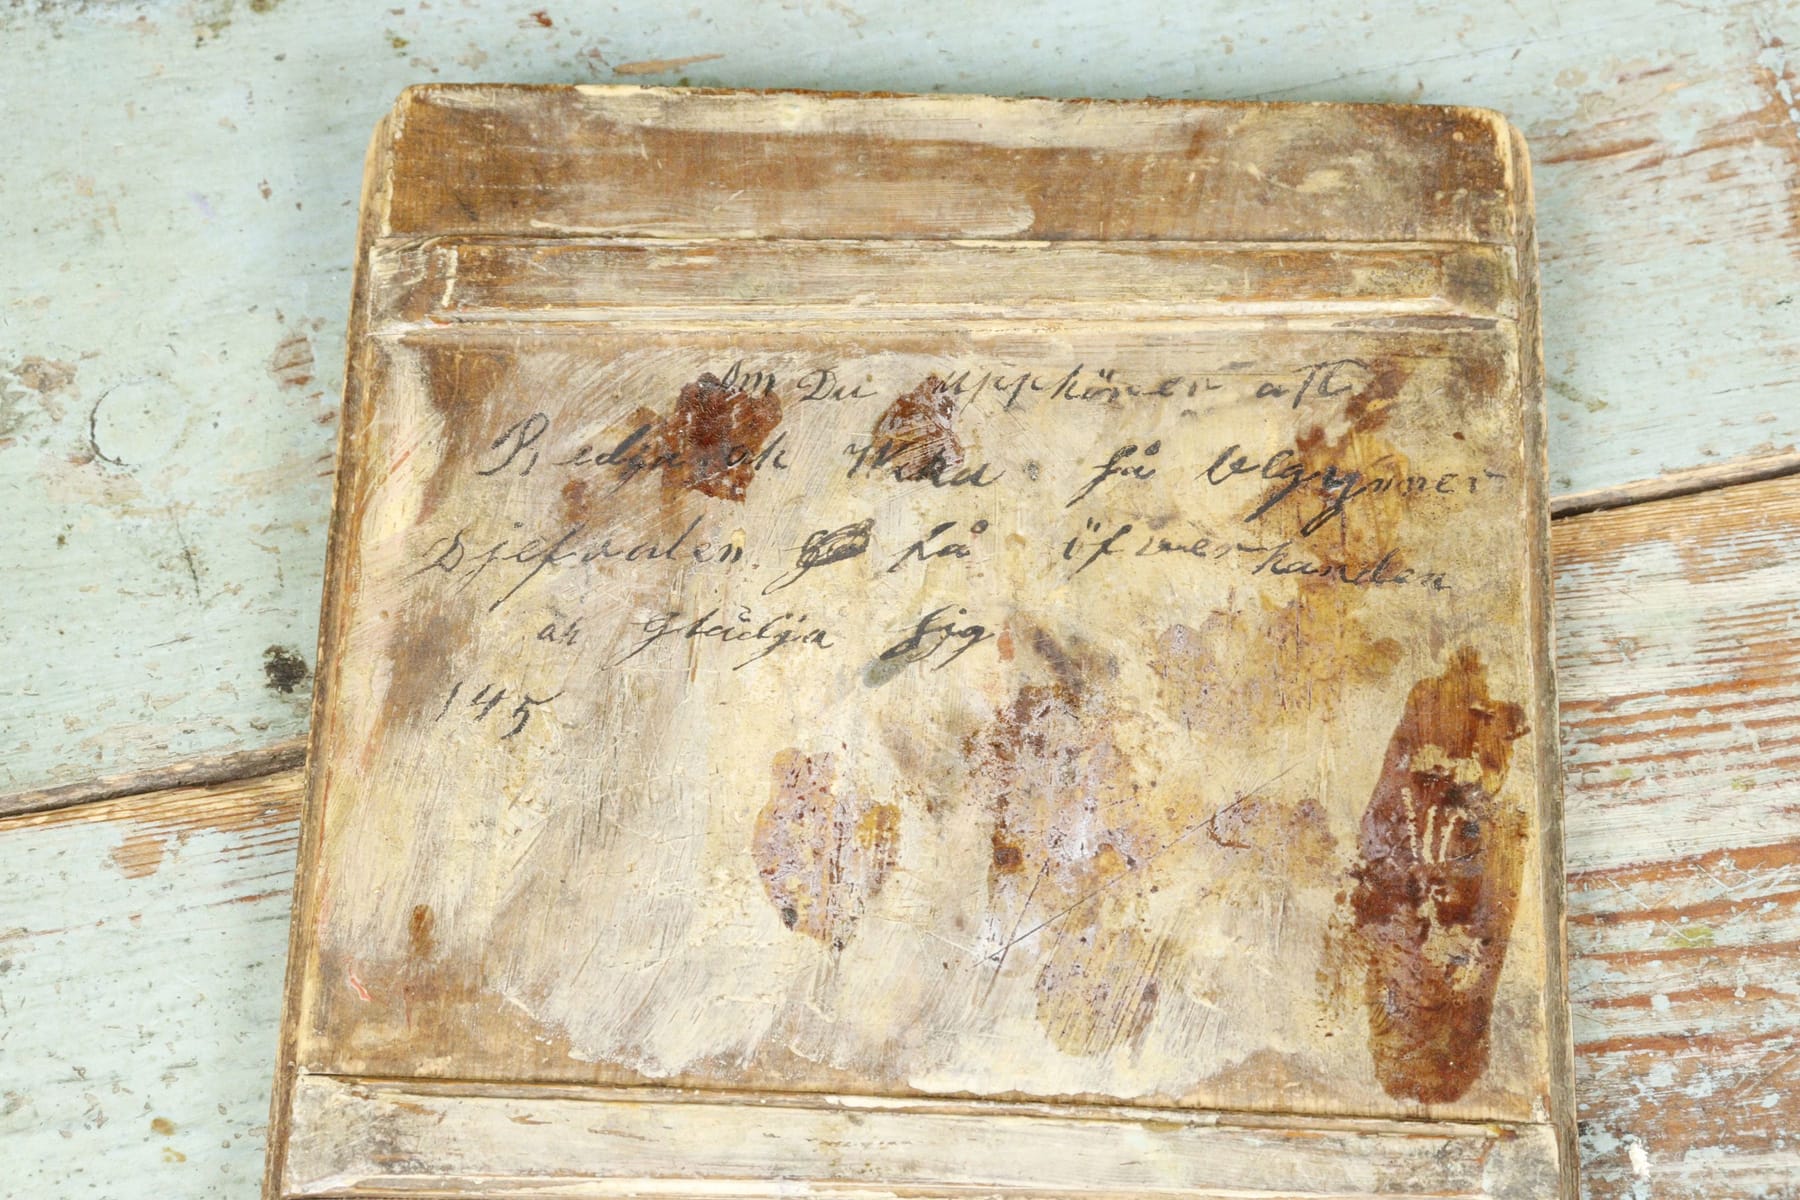 Om Du upphörer att
Bedja ok Waka så begynner
Djefvulen få öfwerhanden
ok glädja sig
145